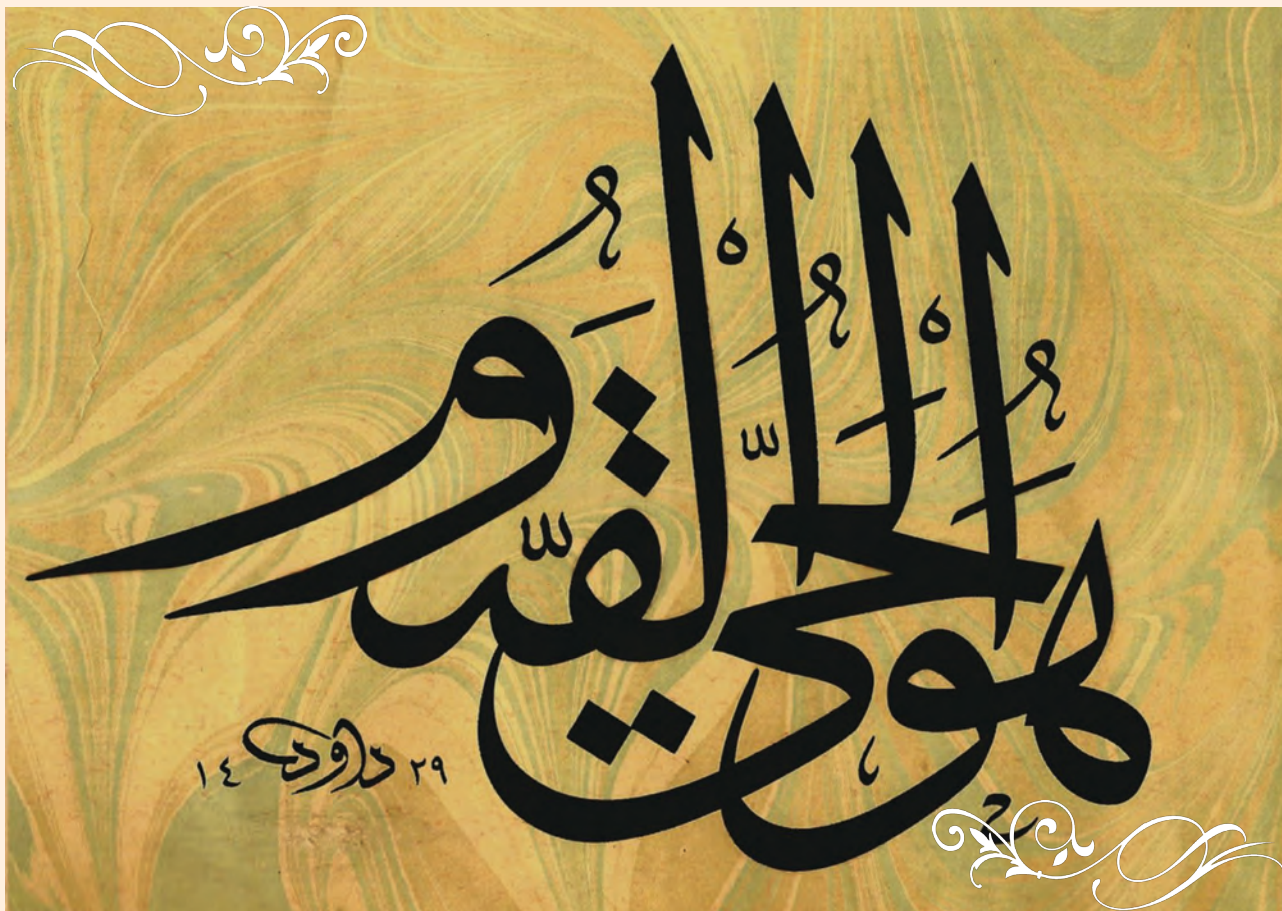 هُوَ الْحَيُّ الْقَيُّومُ
٢٩ داود ١٤